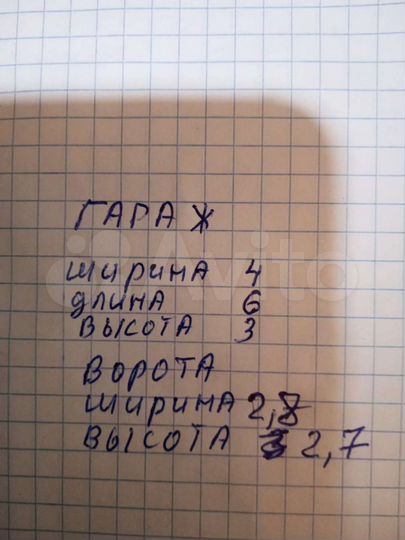 ГАРАЖ
ширина 4
длина 6
высота 3
ворота
ширина 2,8
высота 2,7
Avito